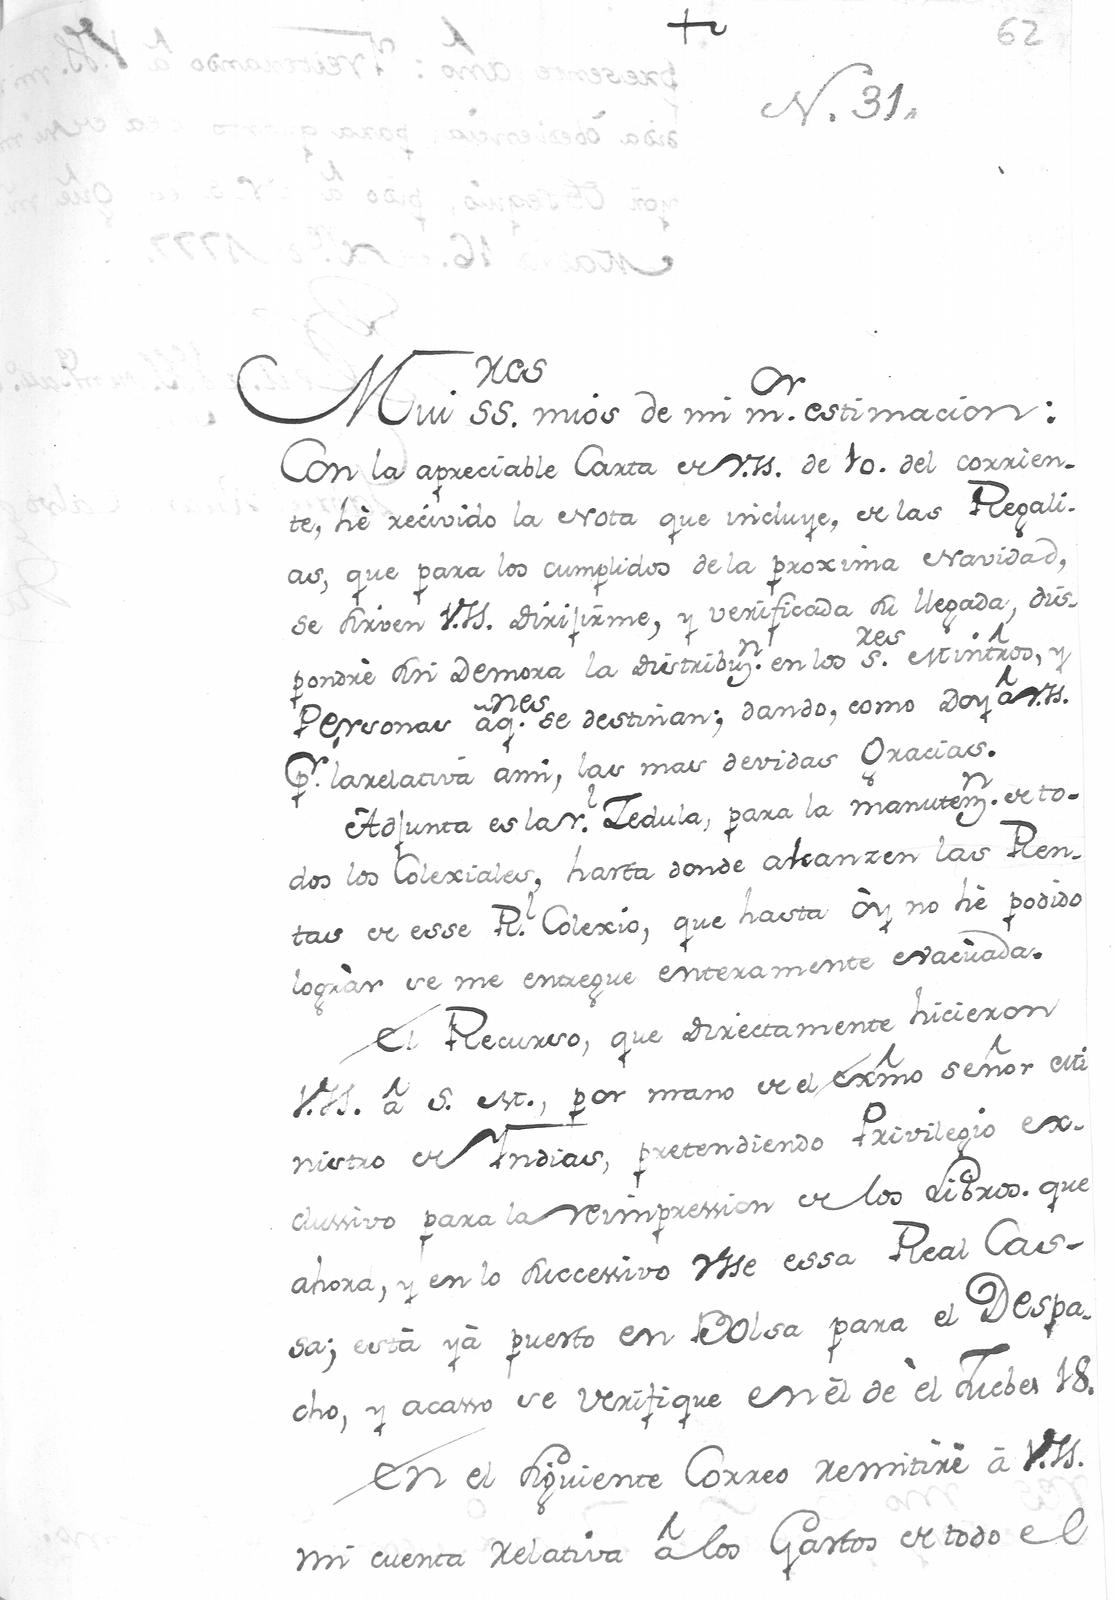 62
N. 31.
Mui SS.res mios de mi m.or estimacion:
Con la apreciable Carta de V.SS. de 10. del corrien-
te, hè recivido la Nota que incluye, de las Regali-
as, que para los cumplidos de la proxima Navidad,
se sirven V.SS. dirijirme, y verificada su llegada, dis-
pondrè sin demora la distribuz.n en los S.res Mintros, y
Personas àq.nes se destinan; dando, como Doy à V.SS.
P.r la relativa ami, las mas devidas Gracias.
Adjunta es la r.l Zedula, para la manutenz.n de to-
dos los Colexiales, harta donde alcanzen las Ren-
tas de esse R.l Colexio, que hasta òy no hè podido
logràr se me entregue enteramente evacuada.
El Recurso, que directamente hicieron
V.SS. à S. M., por mano de el exmo señor Mi
nistro de Indias, pretendiendo Privilegio ex-
clussivo para la reimpression de los Libros. que
ahora, y en lo successivo Vse essa Real Cas-
sa; està yà puesto en Bolsa para el Despa-
cho, y acasso se verifique en èl de èl Juebes 18.
En el siguiente Correo remitirè à V.SS.
mi cuenta relativa à los Gastos de todo el